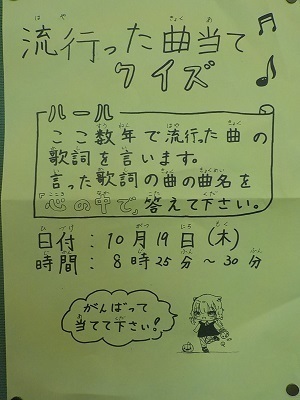 流行った曲当て
クイズ
ルール
ここ数年で流行った曲の
歌詞を言います。
言った歌詞の曲の曲名を
「心の中で」答えて下さい。
日付：10月19日(木)
時間：8時25分～30分
がんばって
当てて下さい！